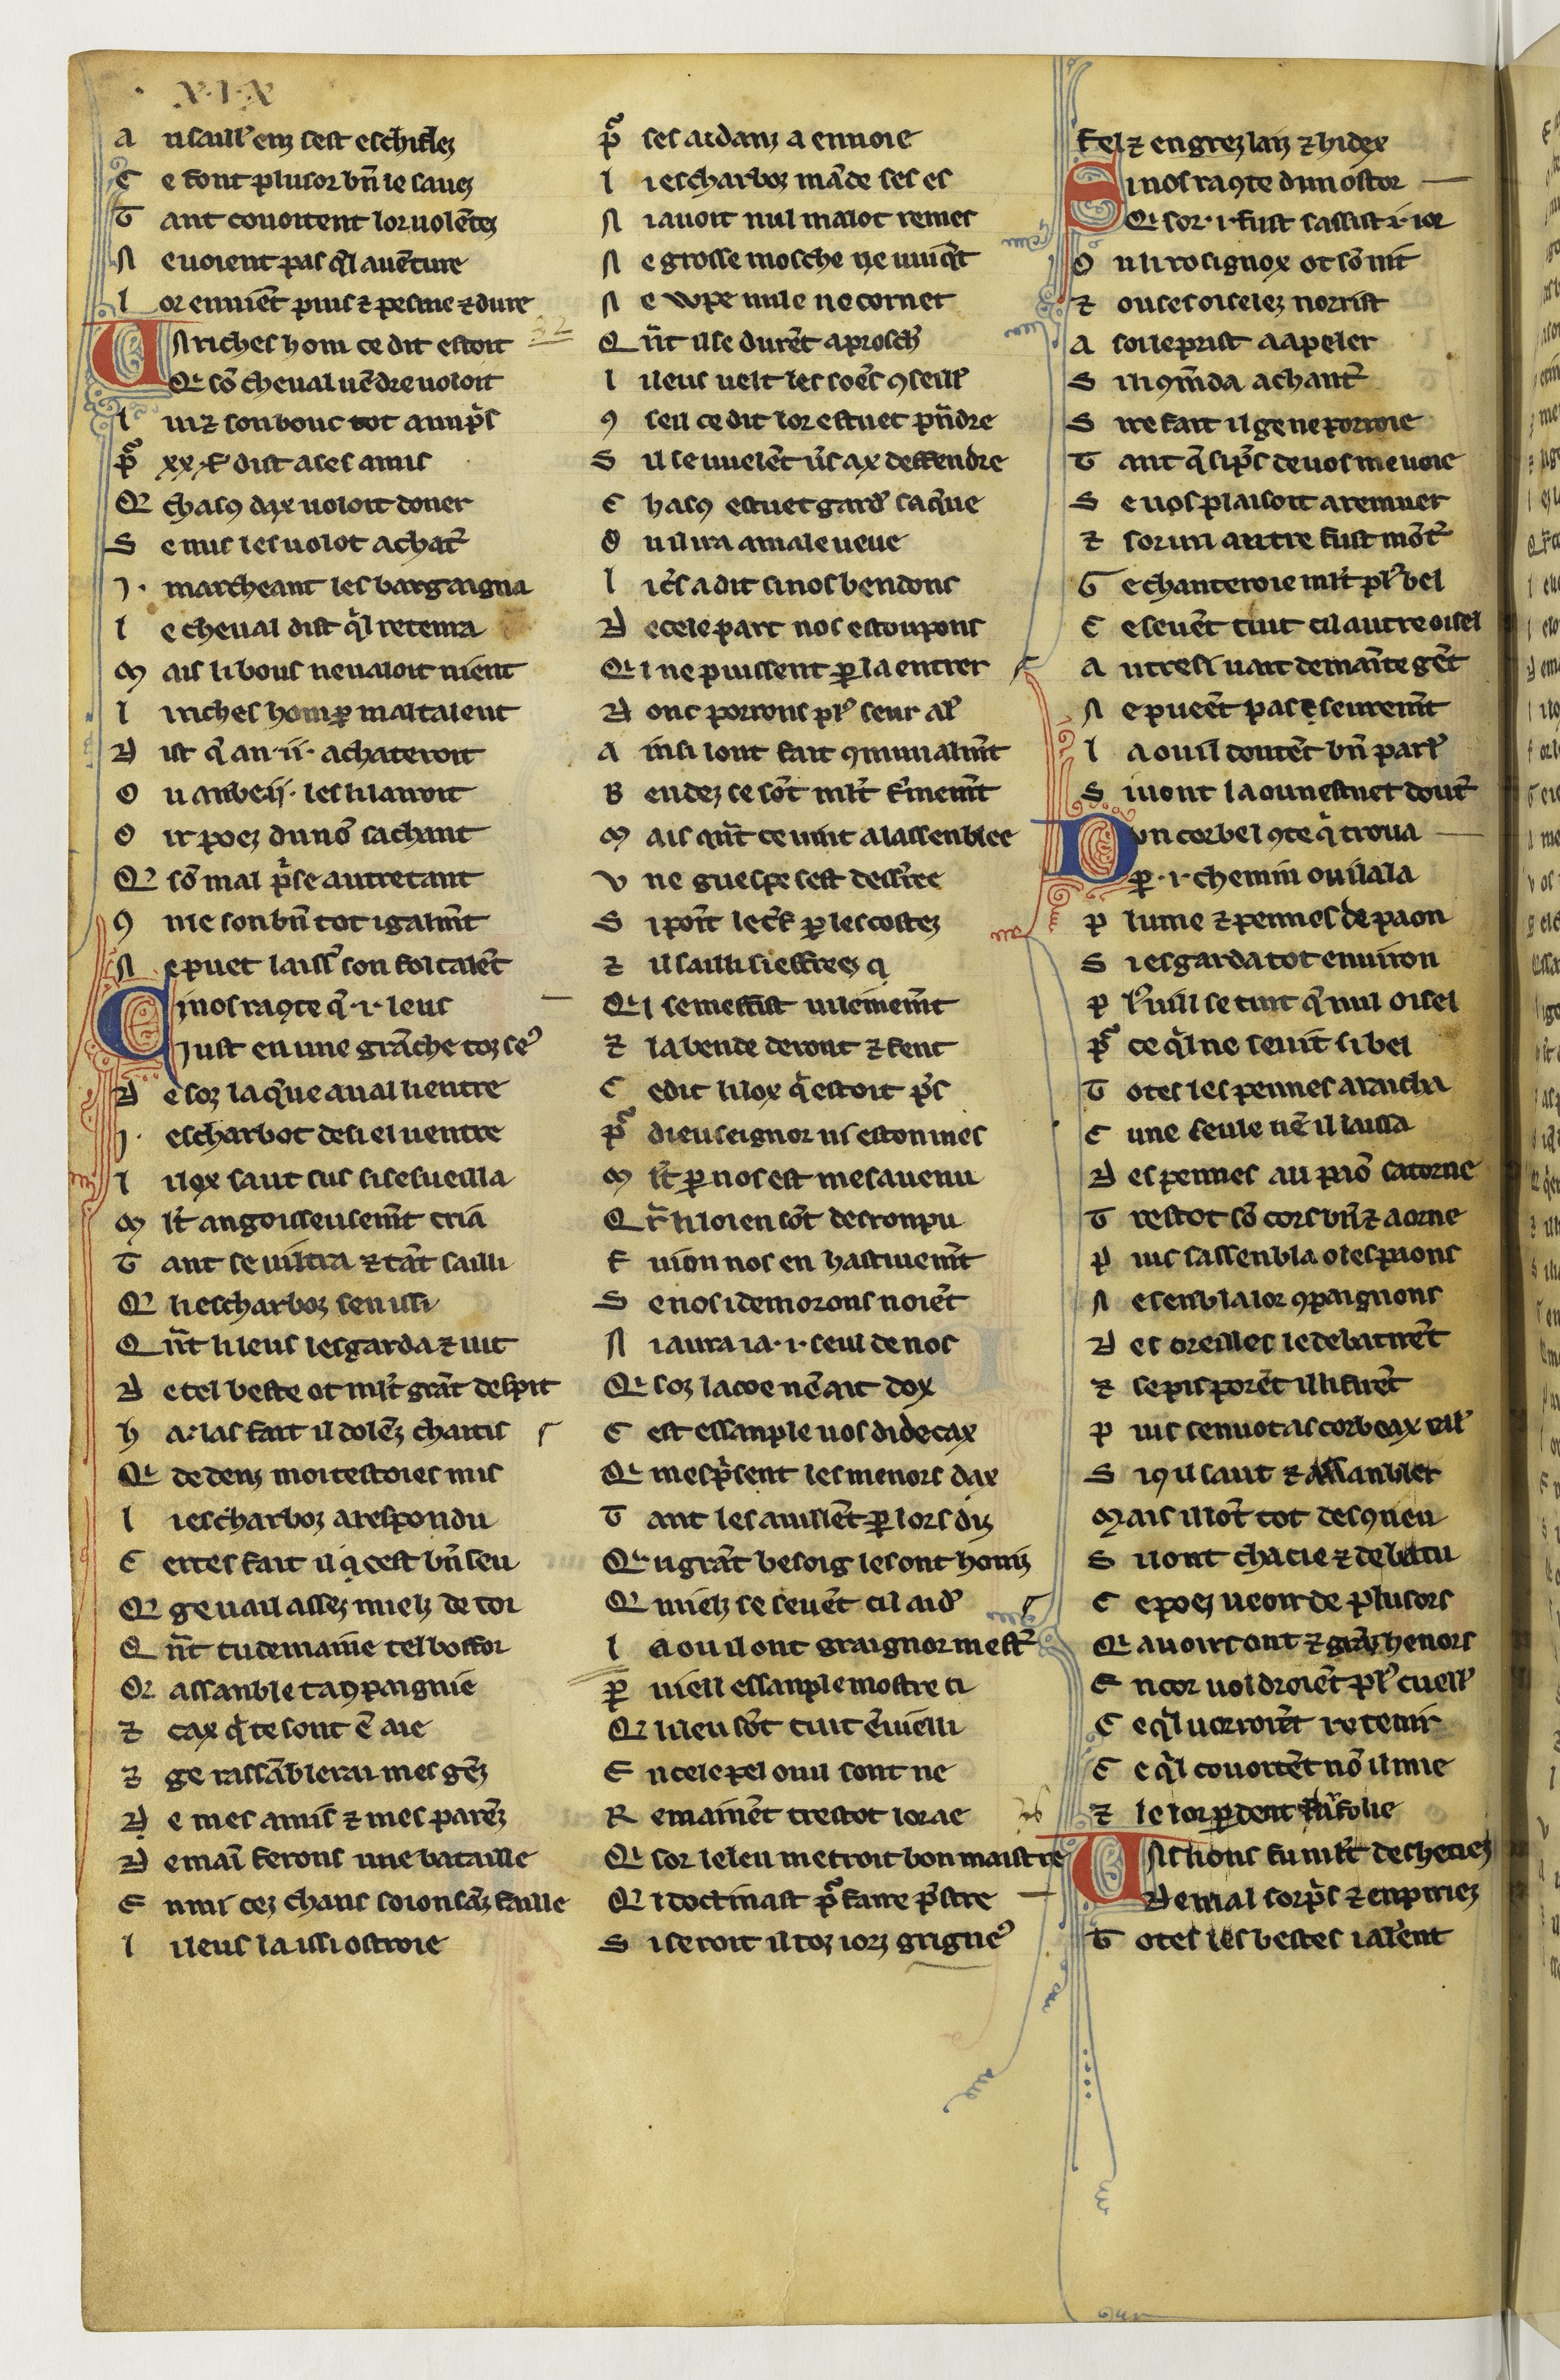 X·I·X
A usaill' enz sest eschiflez
C e font plusor bn̄ le savez
T ant covoitent lor uolētez
N e voient pas ql̄ auēture
l or enuiēt puis ⁊ pesme ⁊ dure
Uns riches hom ce dit estoit
Qi sō cheval uēdre voloit
l ui ⁊ son bouc tot a un pͥs
p̾ xx·s' dist a ses amis
Qi chasꝯ dax voloit doner
S e nus les uolot achat'
j· marcheant les bargaigna
l e cheval dist ql̄ retenra
M ais li bous ne valoit nient
l i riches hom ꝑ maltalent
D ist q̄ an·ii· achateroit
O u anbeij· les li lairoit
O ir poez du nō sachant
Qi sō mal pͥse autretant
ꝯ me son bn̄ tot igalm̄t
N e puet laiss' son fol talēt
Ci nos raꝯte q̄·i·leus
Just en une grāche toz se'
D e soz la qͥue aual li entre
j· escharbot desi el uentre
l i lox saut sus si sesueilla
M lt̄ angoisseusem̄t cria
T ant se uiltra ⁊ tāt sailli
Qi li escharboz sen issi
Q n̄t li leus lesgarda ⁊ uit
D e tel beste ot mlt̄ grāt despit
h a·las fait il dolēz chaitis
Qi dedenz moi testoies mis
l i escharboz a respondu
C ertes fait il q̇ cest bn̄ seu
Qi ge vail assez mielz de toi
Q n̄t tu demaine tel boffoi
Or assanble ta ꝯpaignie
⁊ cax qͥ te sont ē aie
⁊ ge rassāblerai mes gēz
D e mes amis ⁊ mes parēz
D emaī ferons une bataille
E nmi cez chans soion sāz faille
l i leus la issi ostroie
p̾ ses aidanz a enuoie
l i escharboz māde ses es
N i avoit nul malot remes
N e grosse mosche ne uiuq̄t
N e wpe nule ne cornet
Q n̄t il se durēt aprosch'
l i leus uelt les soēs ꝯseill'
ꝯ seu ce dit lor estuet pn̄dre
S il se uuelēt ūs ax deffendre
C hasꝯ estuet gard' sa qͥue
O u il ira a male ueue
l i cͥs a dit si nos bendons
D e cele part nos estoupons
Qi l ne puissent ꝑ la entrer
D onc porrons pl' seur al'
A insi lont fait ꝯmunalm̄t
B endez se sōt mlt̄ fͥmem̄t
M ais qn̄t ce uint a lassenblee
V ne guespe sest desͥree
S i point le cͥf ꝑ les costez
⁊ il sailli si effreez q
Qi l se meffist uileinem̄t
⁊ la bende deront ⁊ fent
C e dit li lox qͥ estoit pͥs
p̾ dieu seignor ns estonmes
M lt̄ ꝑ nos est mesauenu
Q r̄ li loien sōt desronpu
F uion nos en hastiuem̄t
S e nos i demorons noiēt
N i aura ia·i·seul de nos
Qi soz la coe nē ait dox
C est essanple uos di de cax
Qi mespͥsent les menors dax
T ant les auissēt ꝑ lors diz
Qi u grāt besoig les ont honiz
Qi mielz se seuēt cil aid'
l a ou il ont graignor mest'
ꝑ uieil essanple mostre ci
Qi li leu sōt tuit ēuieilli
E n cele pel ou il sont ne
R emainēt trestot iorae
Qi sor le leu metroit bon maistre
Qi doctrinast p̾ faire pͥstre
S i seroit il toz iorz grigne'
Fel ⁊ engrez laiz ⁊ hidex
Si nos raꝯte dun ostor
Qi sor·i·fust sassist·i·ior
O u li rosignox ot sō nit
⁊ ou ses oiselez norrist
A soi le prist a apeler
S i li ꝯm̄da a chant'
S ire fait il ge ne porroie
T ant q̄ si pͥs de uos me uoie
S e uos plaisoit a remuer
⁊ sor un autre fust mōt'
G e chanteroie mlt̄ pl' bel
C e seuēt tuit cil autre oisel
A utresi uait de maīte gēt
N e pueēt pas seurem̄t
l a ou il doutēt bn̄ parl'
S i uont la ou nestuet dout'
Dun corbel ꝯte qͥ troua
ꝑ·i·chemin ou il ala
P lume ⁊ pennes de paon
S i esgarda tot enuiron
P l' uill se tint q̄ nul oisel
p̾ ce ql̄ ne seuit si bel
T otes les pennes aracha
C une seule nē il laissa
D es pennes au paō satorne
T restot sō cors bn̄ ⁊ aorne
P uis sassenbla o les paons
N e senbla lor ꝯpaignons
D es oreilles le debatirēt
⁊ se pis porēt il li firēt
P uis senuot as corbeax all'
S i qͥl saut ⁊ assanbler
M ais il lōt tot desꝯneu
S i lont chacie ⁊ debatu
C e poez ueoir de plusors
Qi auoirs ont ⁊ grās henors
E ncor uoldroiēt pl' cueill'
C e ql̄ uorroiēt retenir
C e ql̄ couoitēt nō il mie
⁊ le lor ꝑdent ꝑ lr̄ folie
Uns lions fu mlt̄ decheuz
De mal sorpͥs ⁊ enpiriez
T otes les bestes i alerent